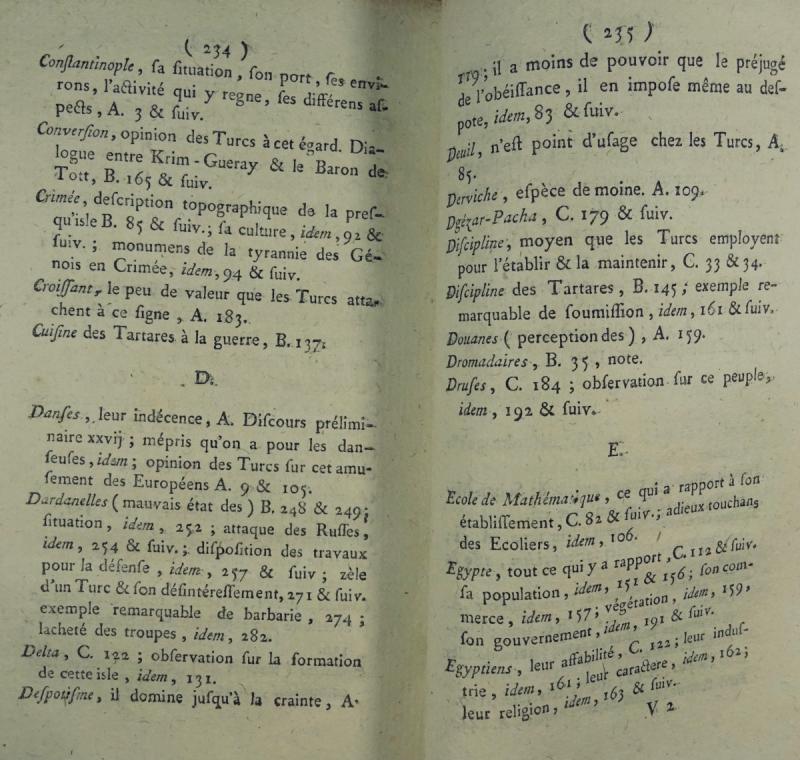 ( 234 )
Conſtantinople, ſa ſituation, ſon port, ſes envi-
rons, l'activité qui y regne, ſes différens aſ-
pects, A. 3 & ſuiv.
Converſion, opinion des Turcs à cet égard. Dia-
logue entre Krim-Gueray & le Baron de
Tott, B. 165 & ſuiv.
Crimée, deſcription topographique de la preſ-
qu'isle B. 85 & ſuiv.; ſa culture, idem, 92 &
ſuiv.; monumens de la tyrannie des Gé-
nois en Crimée, idem, 94 & ſuiv.
Croiſſant, le peu de valeur que les Turcs atta-
chent à ce ſigne, A. 183.
Cuiſine des Tartares à la guerre, B. 137.
D.
Danſes, leur indécence, A. Diſcours prélimi-
naire xxvij; mépris qu'on a pour les dan-
ſeuſes, idem; opinion des Turcs ſur cet amu-
ſement des Européens A. 9 & 105.
Dardanelles (mauvais état des) B. 248 & 249;
ſituation, idem, 252; attaque des Ruſſes,
idem, 254 & ſuiv.; diſpoſition des travaux
pour la défenſe, idem, 257 & ſuiv; zèle
d'un Turc & ſon déſintéreſſement, 271 & ſuiv.
exemple remarquable de barbarie, 274;
lacheté des troupes, idem, 282.
Delta, C. 122; obſervation ſur la formation
de cette isle, idem, 131.
Deſpotiſme, il domine juſqu'à la crainte, A.
( 235 )
179; il a moins de pouvoir que le préjugé
de l'obéiſſance, il en impoſe même au deſ-
pote, idem, 83 & ſuiv.
Deuil, n'eſt point d'uſage chez les Turcs, A.
85.
Derviche, eſpèce de moine. A. 109.
Dgézar-Pacha, C. 179 & ſuiv.
Diſcipline, moyen que les Turcs employent
pour l'établir & la maintenir, C. 33 & 34.
Diſcipline des Tartares, B. 145; exemple re-
marquable de ſoumiſſion, idem, 161 & ſuiv.
Douanes (perception des), A. 159.
Dromadaires, B. 35, note.
Druſes, C. 184; obſervation ſur ce peuple,
idem, 192 & ſuiv.
E.
Ecole de Mathématique, ce qui a rapport à ſon
établiſſement, C. 82 & ſuiv.; adieux touchans
des Ecoliers, idem, 106.
Egypte, tout ce qui y a rapport, C. 112 & ſuiv.
ſa population, idem, 151 & 156; ſon com-
merce, idem, 157; végétation, idem, 159,
ſon gouvernement, idem, 191 & ſuiv.
Egyptiens, leur affabilité, C. 122; leur induſ-
trie, idem, 161; leur caractere, idem, 162;
leur religion, idem, 163 & ſuiv.
V 2